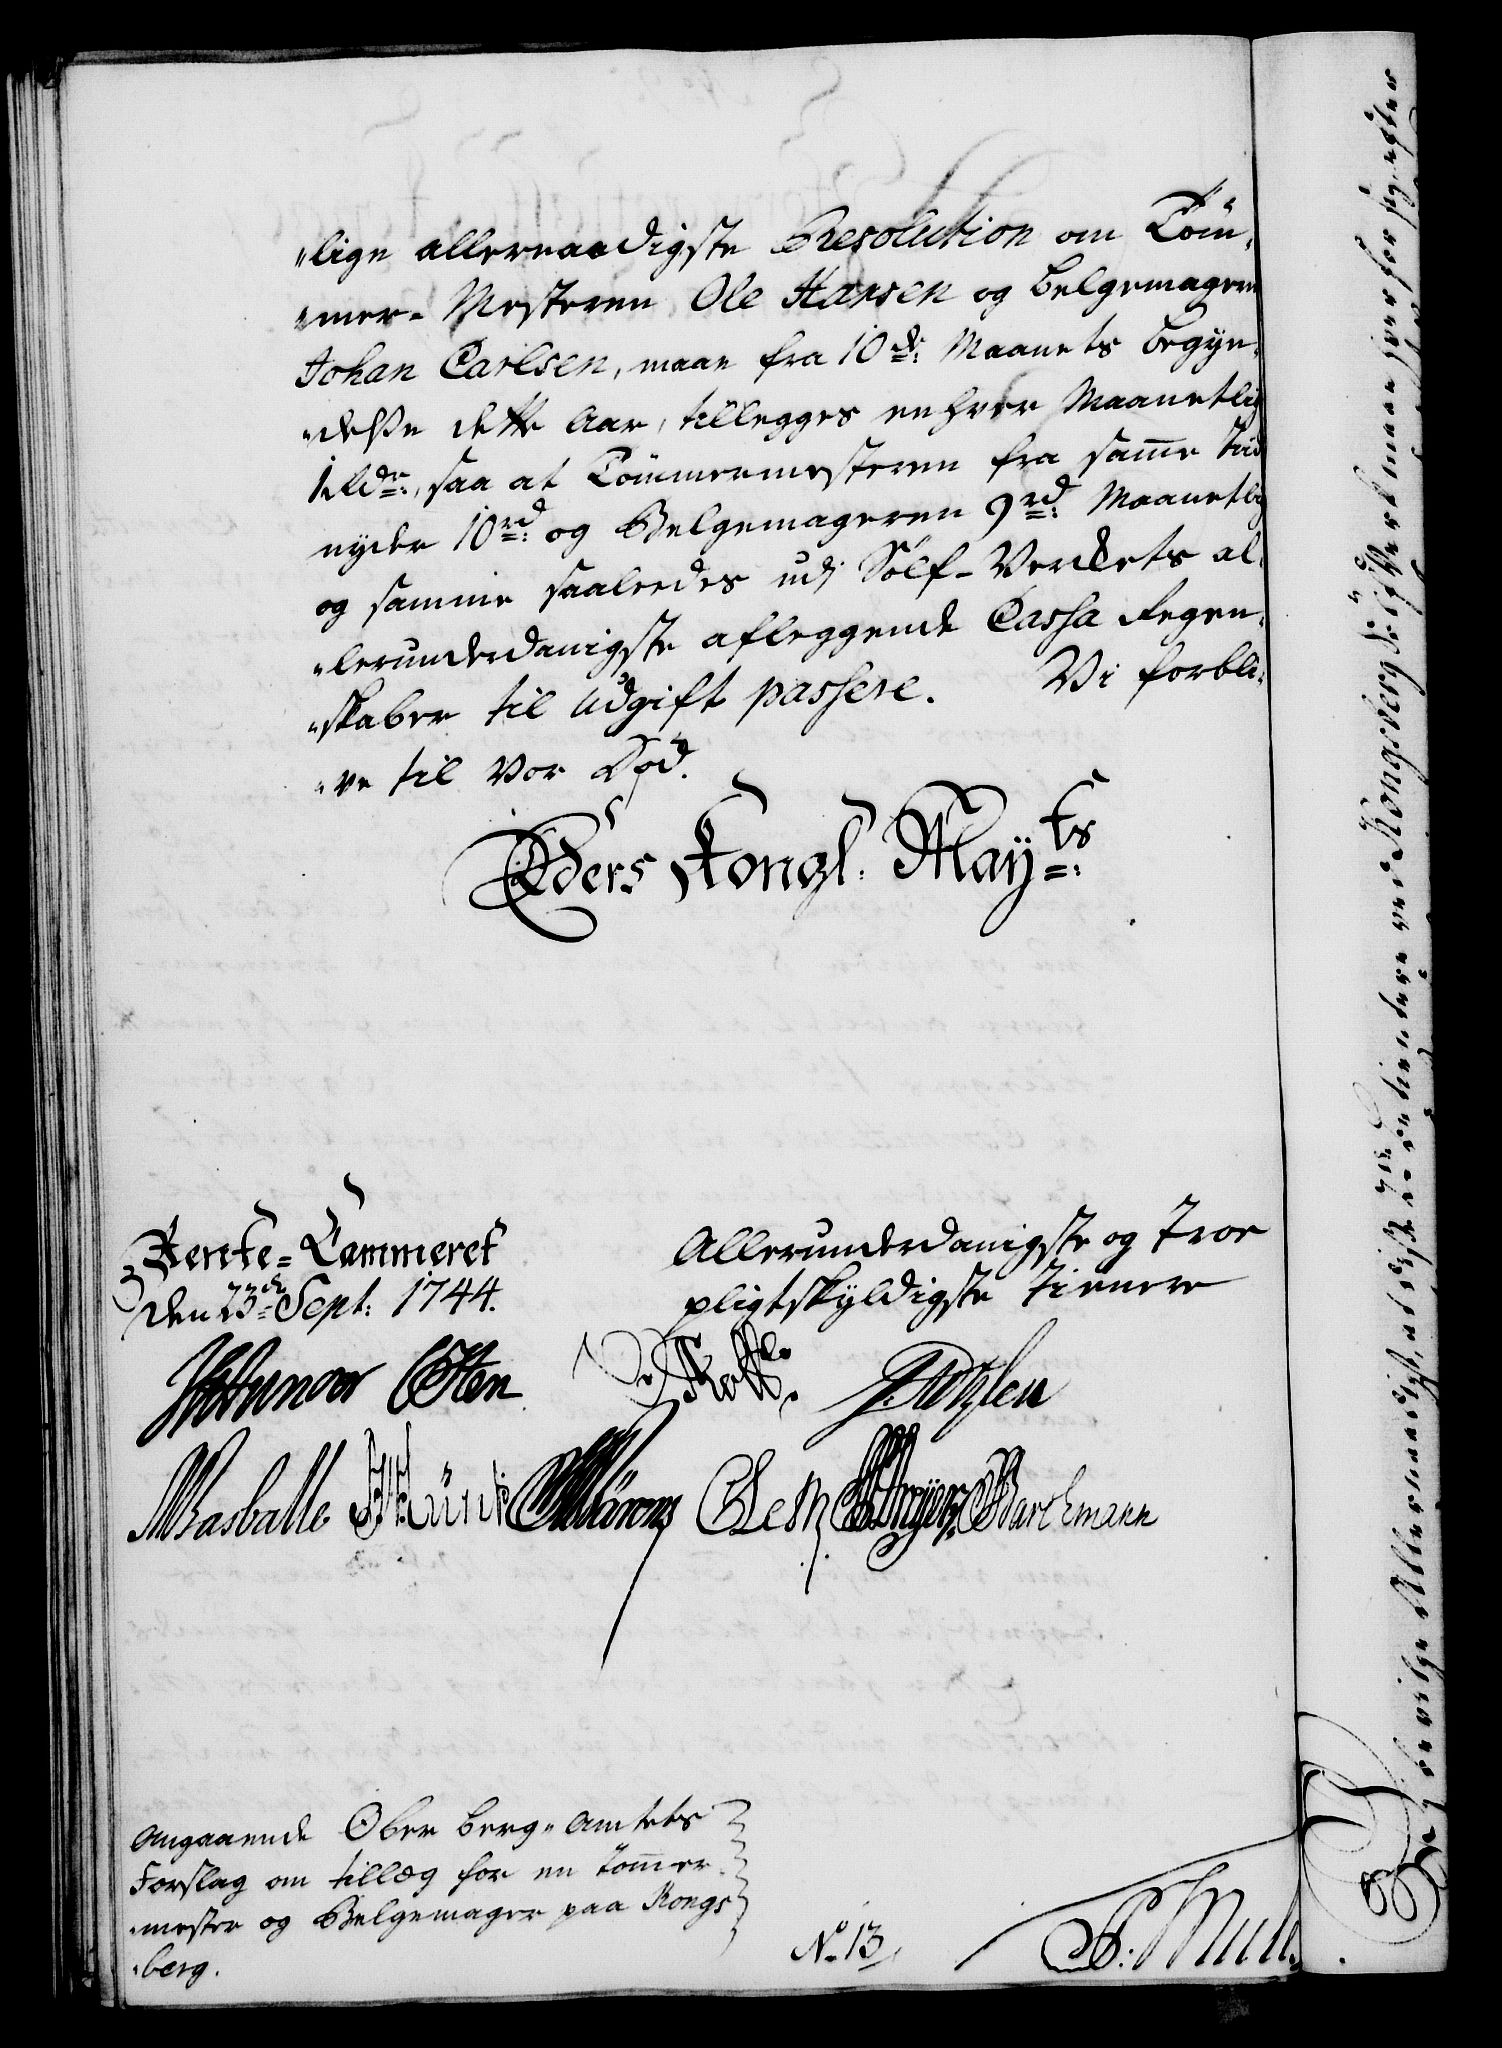 "lige allernaadigste Resolution om Töm„
"mer-Mesteren Ole Hansen og Belgemageren
Johan Carlsen, maae fra 10de Maanets Begyn„
"delse dette Aar, tillegges enhver Maanetlig
1 Rdr, saa at Tömmermesteren fra samme Tiid
nyder 10 rd: og Belgemageren 9 rd: Maanetlig
og samme saaledes udj Sölf-Verkets al„
"lerunderdanigste aflæggende Cassa Regen„
"skaber til Udgift passere. Vi forbli„
"ve til Vor Död.
Eders Kongl. Mayts:
Rente=Cammeret
den 23de Sept: 1744.
Allerunderdanigste og Troe
pligtskyldigste Tienere
Basballe
Barthmann
Angaaende Ober Berg-Amtets
Forslag om tillæg for en Tömmer„
"mester og Belgemager paa Kongs
"berg.
No 13
Vi bevilge Allernaadigst, at disse 2de Betientere ved Kongsberg Sölf-Verk maae hver for sig, efter